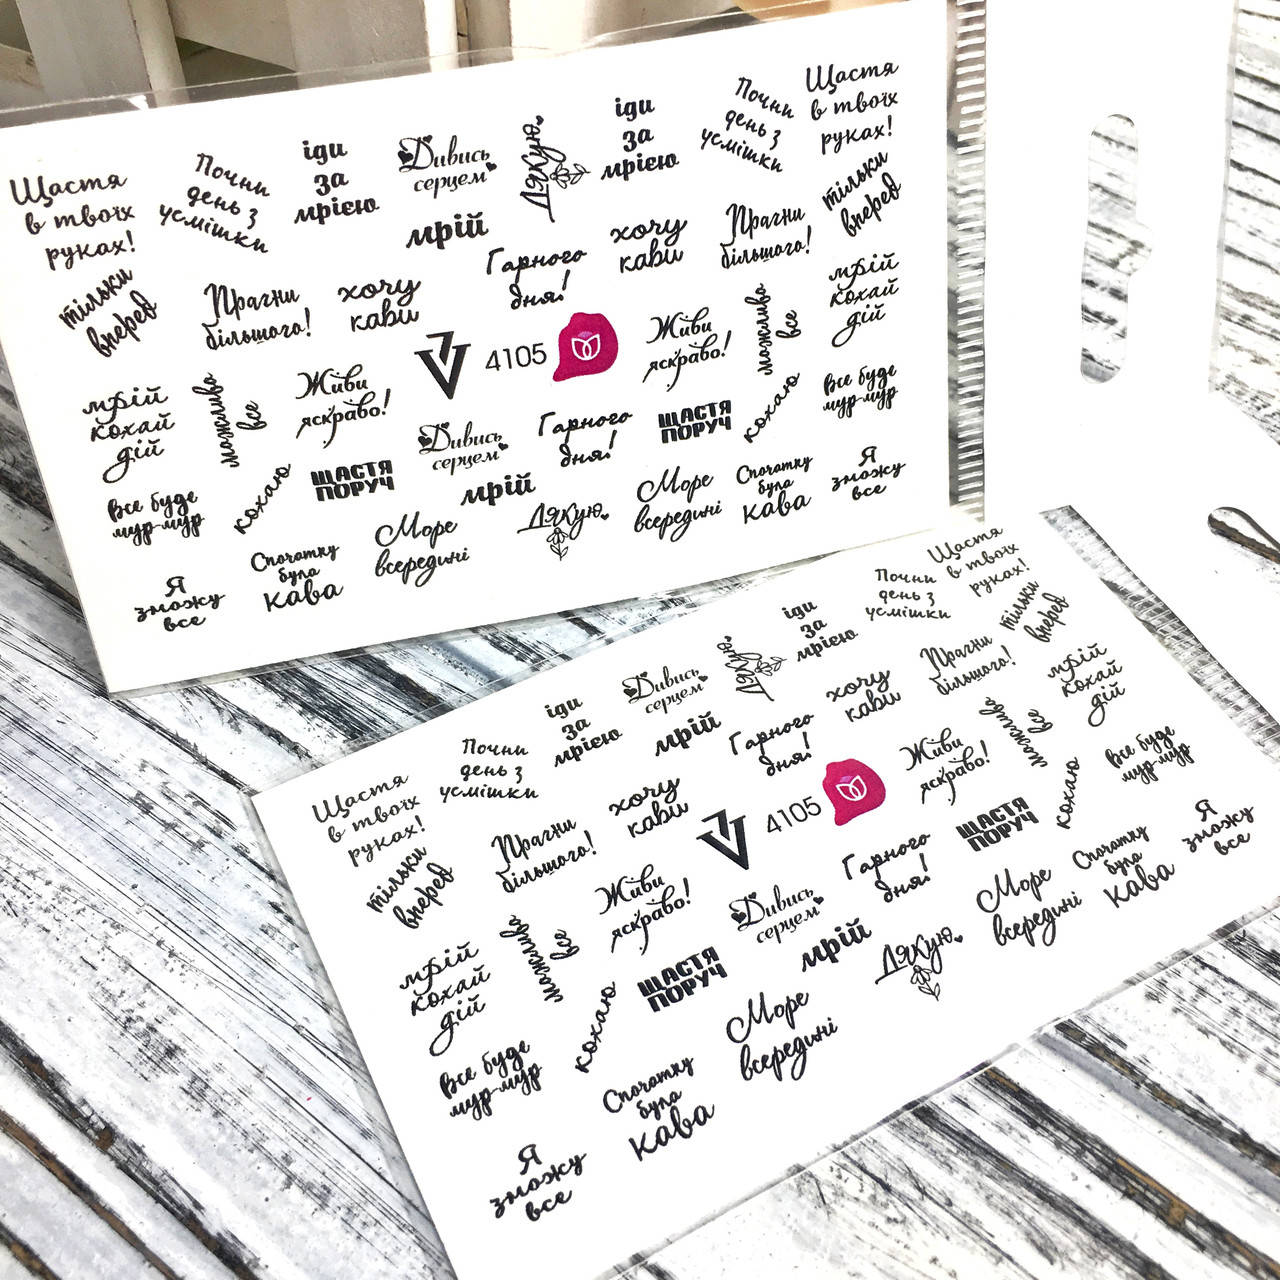 Щастя
в твоїх
руках!
Почни
день з
усмішки
іди
за
мрією
Дивись
серцем
Дякую
іди
за
мрією
Почни
день з
усмішки
Щастя
в твоїх
руках!
тільки
вперед
Прагни
більшого!
хочу
кави
мрій
Гарного
дня!
хочу
кави
Прагни
більшого!
тільки
вперед
мрій
кохай
дій
можливо
все
Живи
яскраво!
4105
Живи
яскраво!
можливо
все
мрій
кохай
дій
Все буде
мур-мур
кохаю
ЩАСТЯ
ПОРУЧ
Дивись
серцем
Гарного
дня!
ЩАСТЯ
ПОРУЧ
кохаю
Все буде
мур-мур
Я
зможу
все
Спочатку
була
кава
Море
всередині
мрій
Дякую
Море
всередині
Спочатку
була
кава
Я
зможу
все
Щастя
в твоїх
руках!
Почни
день з
усмішки
іди
за
мрією
Дивись
серцем
Дякую
іди
за
мрією
Почни
день з
усмішки
Щастя
в твоїх
руках!
тільки
вперед
Прагни
більшого!
хочу
кави
мрій
Гарного
дня!
хочу
кави
Прагни
більшого!
тільки
вперед
мрій
кохай
дій
можливо
все
Живи
яскраво!
4105
Живи
яскраво!
можливо
все
мрій
кохай
дій
Все буде
мур-мур
кохаю
ЩАСТЯ
ПОРУЧ
Дивись
серцем
Гарного
дня!
ЩАСТЯ
ПОРУЧ
кохаю
Все буде
мур-мур
Я
зможу
все
Спочатку
була
кава
Море
всередині
мрій
Дякую
Море
всередині
Спочатку
була
кава
Я
зможу
все